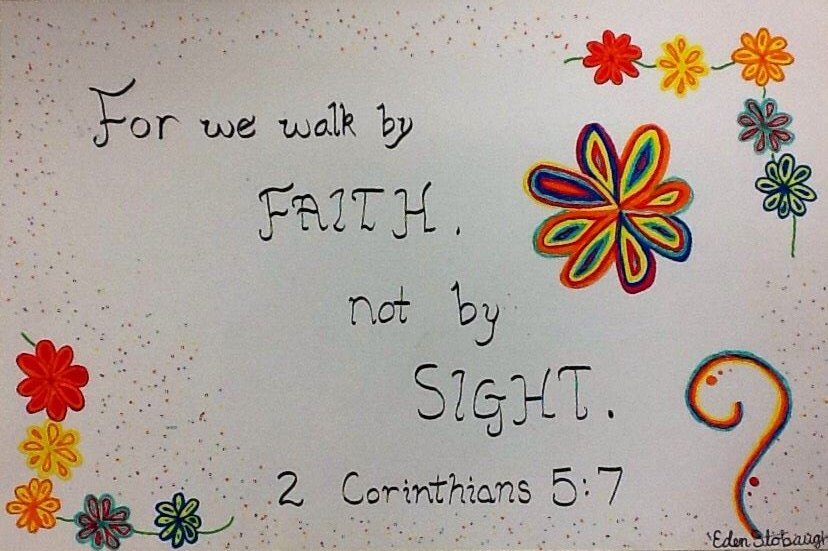 For we walk by
FAITH.
not by
SIGHT.
2 Corinthians 5:7
Eden Stobaugh